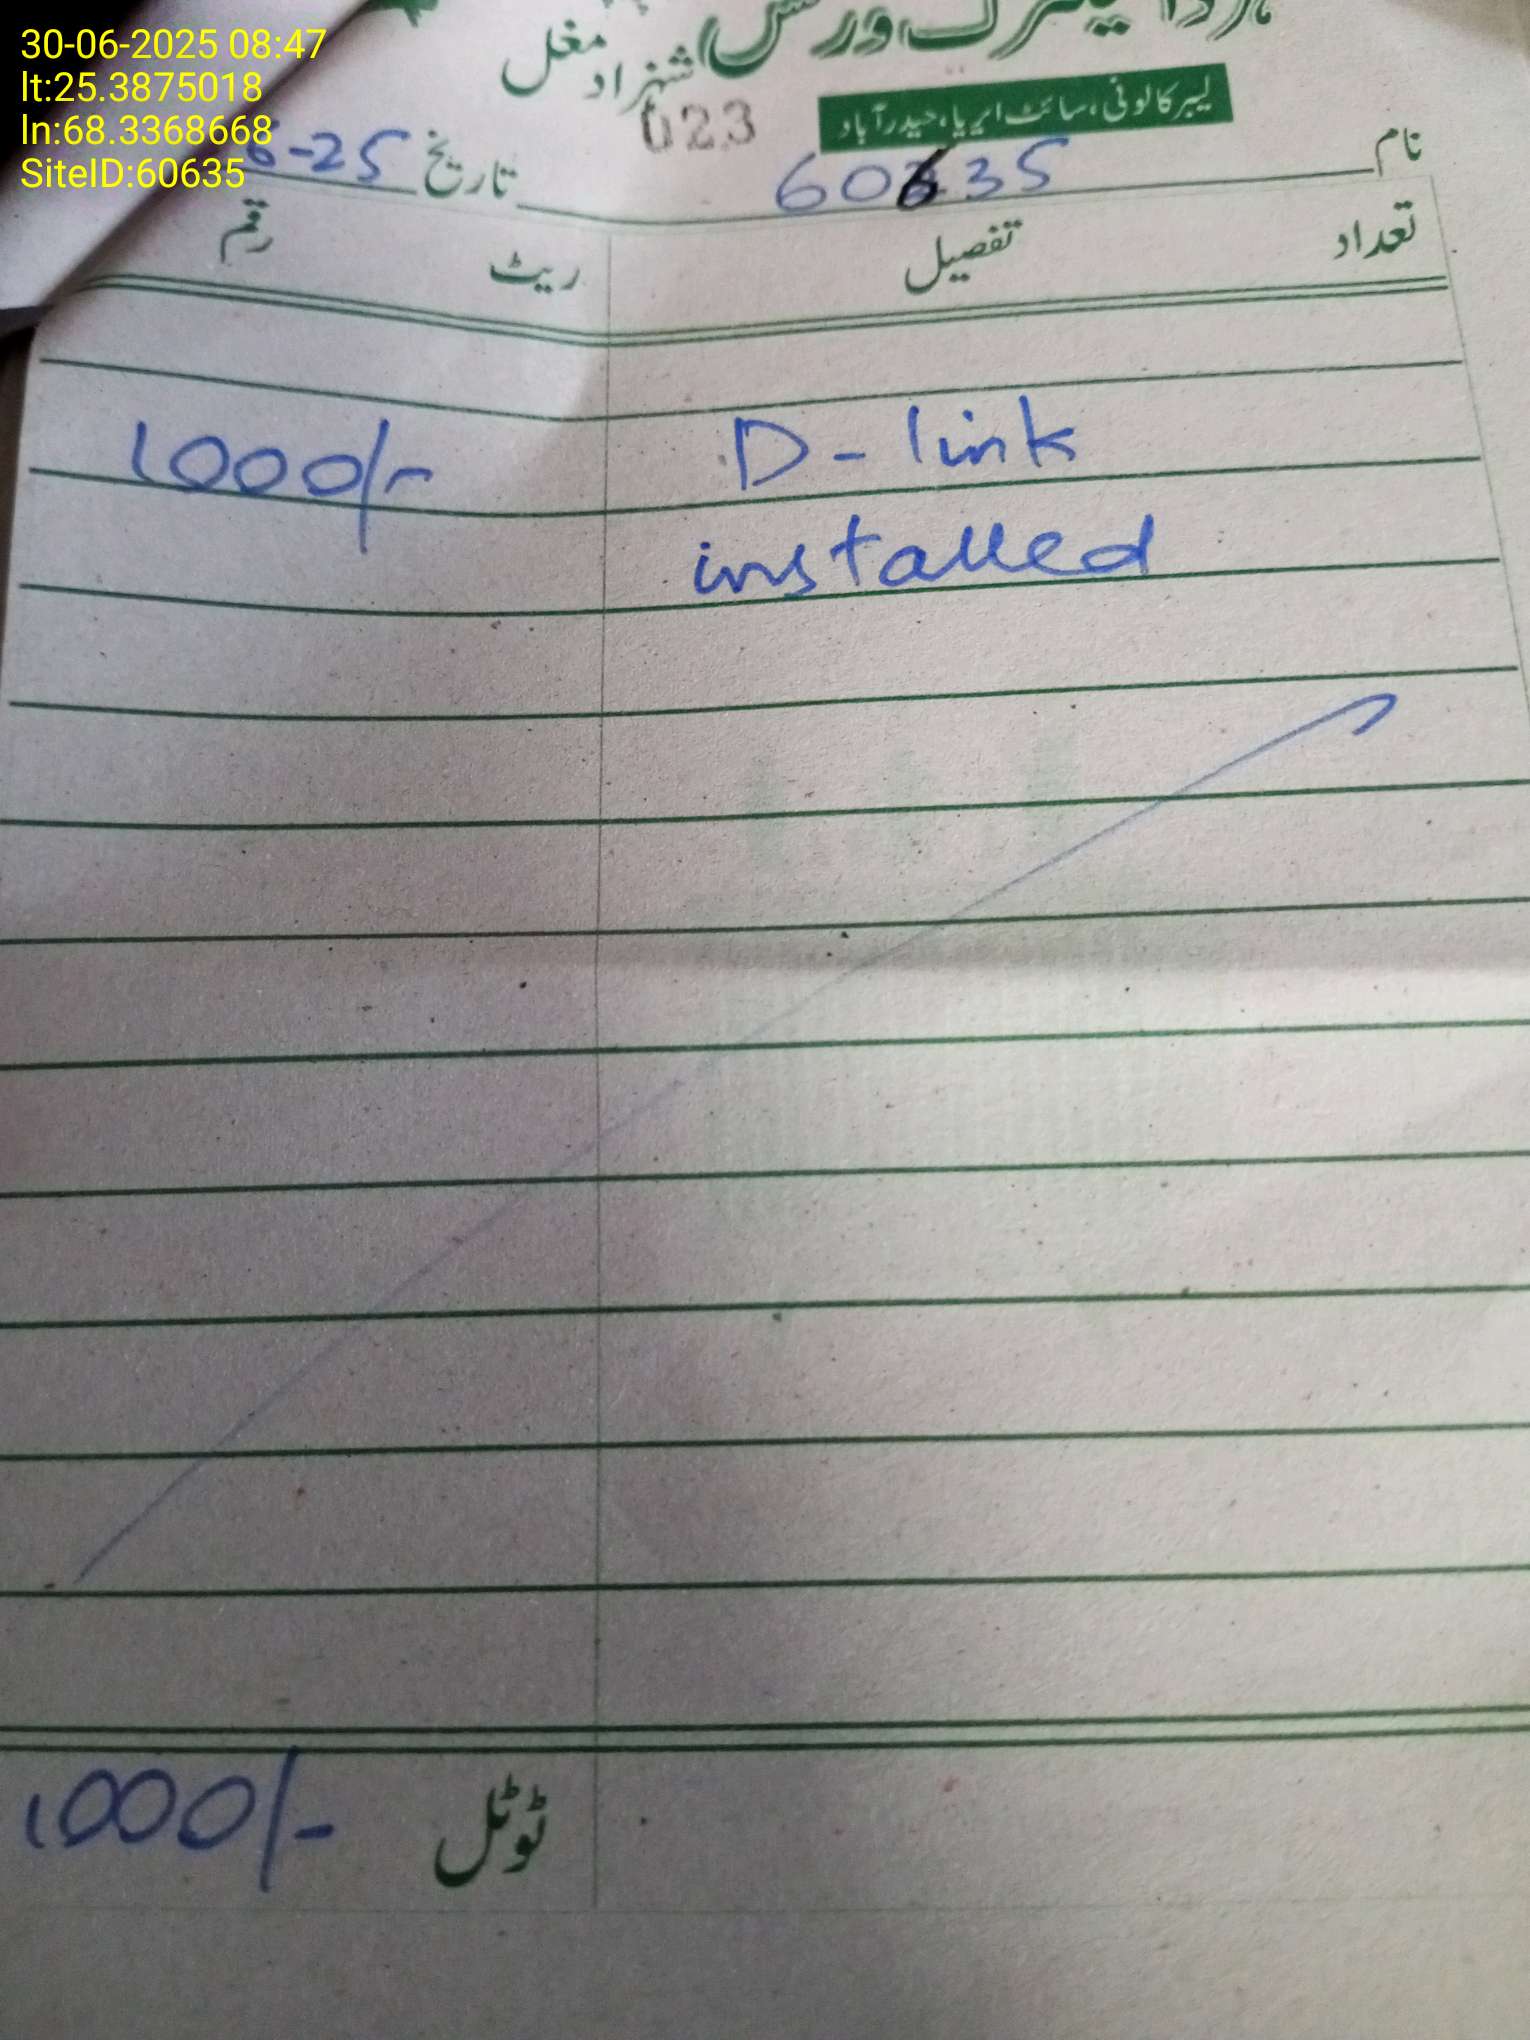 30-06-2025 08:47
lt:25.3875018
ln:68.3368668
SiteID:60635
الیکٹرک ورکس
شہزاد مغل
لیبر کالونی، سائٹ ایریا، حیدرآباد
023
نام 60635 تاریخ 6-25
تعداد تفصیل ریٹ رقم
D-link 1000/-
installed
ٹوٹل 1000/-